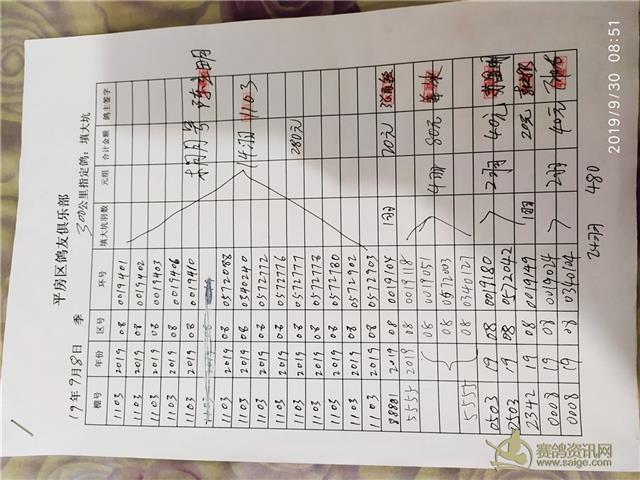 平房区鸽友俱乐部
19年9月8日 季 300公里指定鸽:填大坑
棚号 年份 区号 环号 填大坑羽数 元组 合计金额 鸽主签字
1103 2019 08 0019401
1103 2019 08 0019402
1103 2019 08 0019403
1103 2019 08 0019406
1103 2019 08 0019410
1103 2019 08 0572088
1103 2019 08 0340240 14羽 1103
1103 2019 08 0572772
1103 2019 08 0572776 280元
1103 2019 08 0572777
1103 2019 08 0572778
1103 2019 08 0572780
1103 2019 08 0572902
1103 2019 08 0572903
88881 2019 08 0019104 1羽 20元
5555 2019 08 0019118
08 0019051 4羽 80元
08 0572003
5555 08 0340127
0503 19 08 0019180 2羽 40元
0503 19 08 0572042
2342 19 08 0019149 1羽 20元
0008 19 08 0019014 2羽 40元
0008 19 08 0340104
24羽 480
2019/9/30 08:51
赛鸽资讯网
www.saige.com